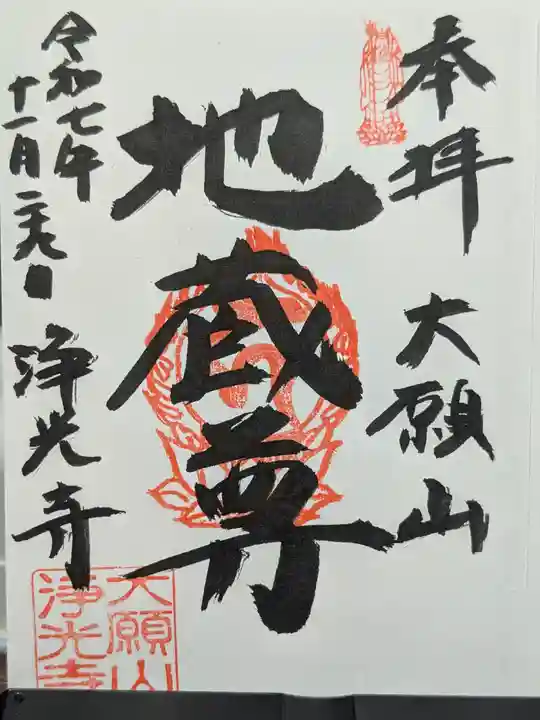 奉拝
大願山
地蔵尊
令和七年
十一月二十九日
浄光寺
大願山
浄光寺